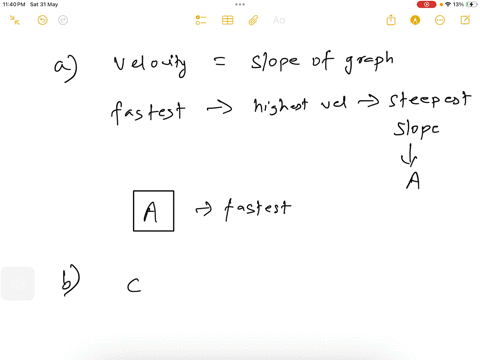 11:40 PM Sat 31 May
13%
Aa
a) velocity = slope of graph
fastest → highest vel → steepest
slope
↓
A
A → fastest
b) C